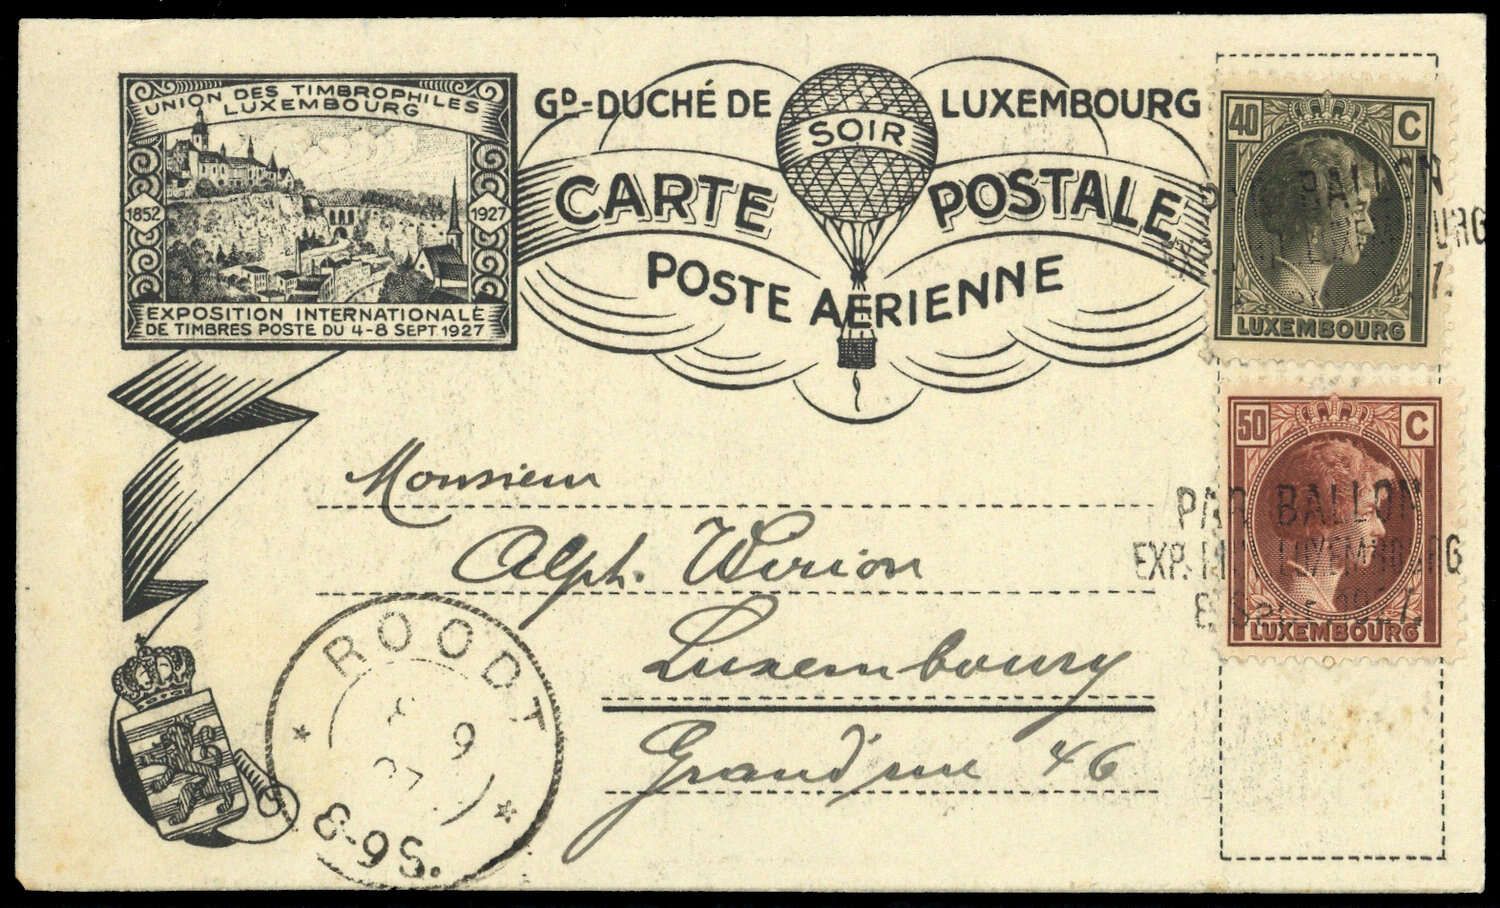 UNION DES TIMBROPHILES
LUXEMBOURG
1852
1927
EXPOSITION INTERNATIONALE
DE TIMBRES POSTE DU 4-8 SEPT 1927
GD-DUCHÉ DE LUXEMBOURG
SOIR
CARTE POSTALE
POSTE AÉRIENNE
40 C
BALLON
LUXEMBOURG
50 C
PAR BALLON
EXP. LUXEMBOURG
LUXEMBOURG
Monsieur
Alph. Wirion
Luxembourg
Grand'rue 46
ROODT
8 9
27
8-9S.